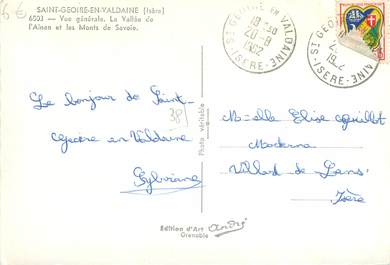 6€
SAINT-GEOIRE-EN-VALDAINE (Isère)
6003 — Vue générale. La Vallée de
l'Ainan et les Monts de Savoie.
Le bonjour de Saint-
Geoire en Valdaine
Sylviane
38
Photo véritable
Edition d'Art André
Grenoble
ST GEOIRE EN VALDAINE
18 H 30
20-8
1962
ISERE
ST GEOIRE
VALDAINE
ISERE
Melle Elise
Moderne
Villard de Lans
Isère